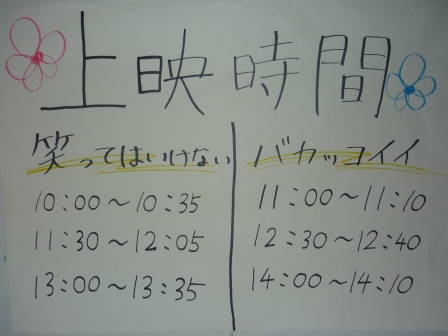 上映時間
笑ってはいけない
10:00〜10:35
11:30〜12:05
13:00〜13:35
バカッコイイ
11:00〜11:10
12:30〜12:40
14:00〜14:10